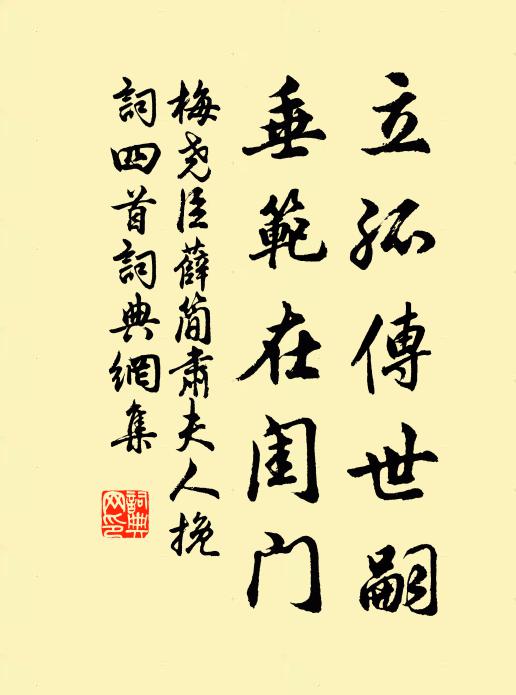 立孤傳世嗣
垂範在闺门
梅堯臣薛简肅夫人挽
詞四首詞典網集
詞典
网印